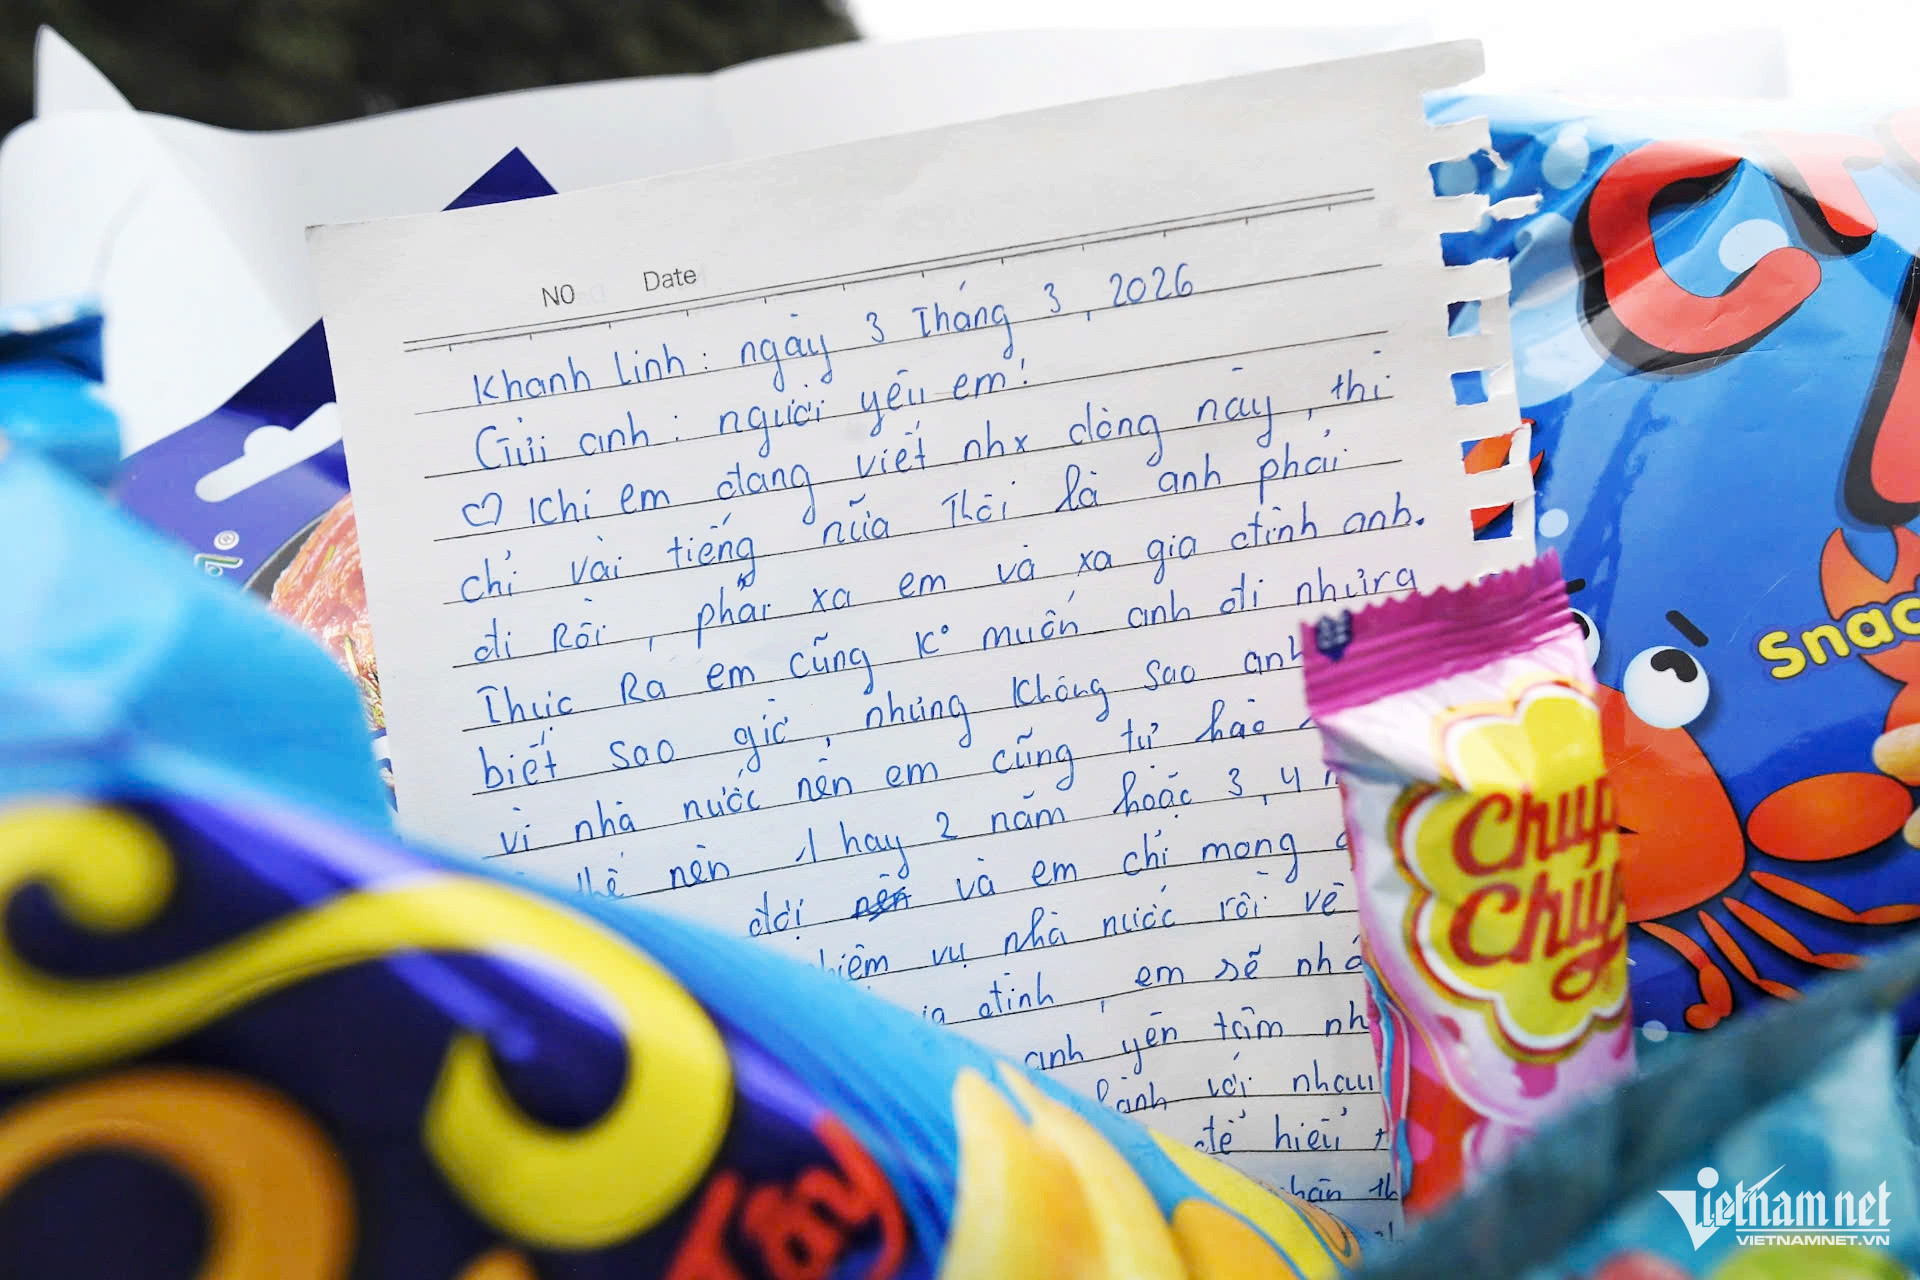 NO Date
Khanh Linh: ngày 3 Tháng 3, 2026
Gửi anh: người yêu em!
♡ Khi em đang viết nhx dòng này, thì
chỉ vài tiếng nữa Thôi là anh phải
đi Rồi, phải xa em và xa gia đình anh.
Thực Ra em cũng K° muốn anh đi nhưng
biết sao giờ, nhưng không sao anh
vì nhà nước nên em cũng tự hào
thế nên 1 hay 2 năm hoặc 3, 4
đợi nên và em chỉ mong
vụ nhà nước rồi về
đình, em sẽ
anh yên tâm nh
với nhau
để hiểu
th
Snac
Chup
Chup
Tây
Vietnamnet
VIETNAMNET.VN